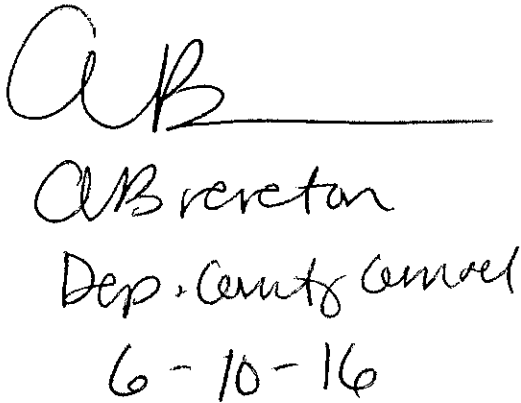 AB
ABrereton
Dep. County Counsel
6-10-16